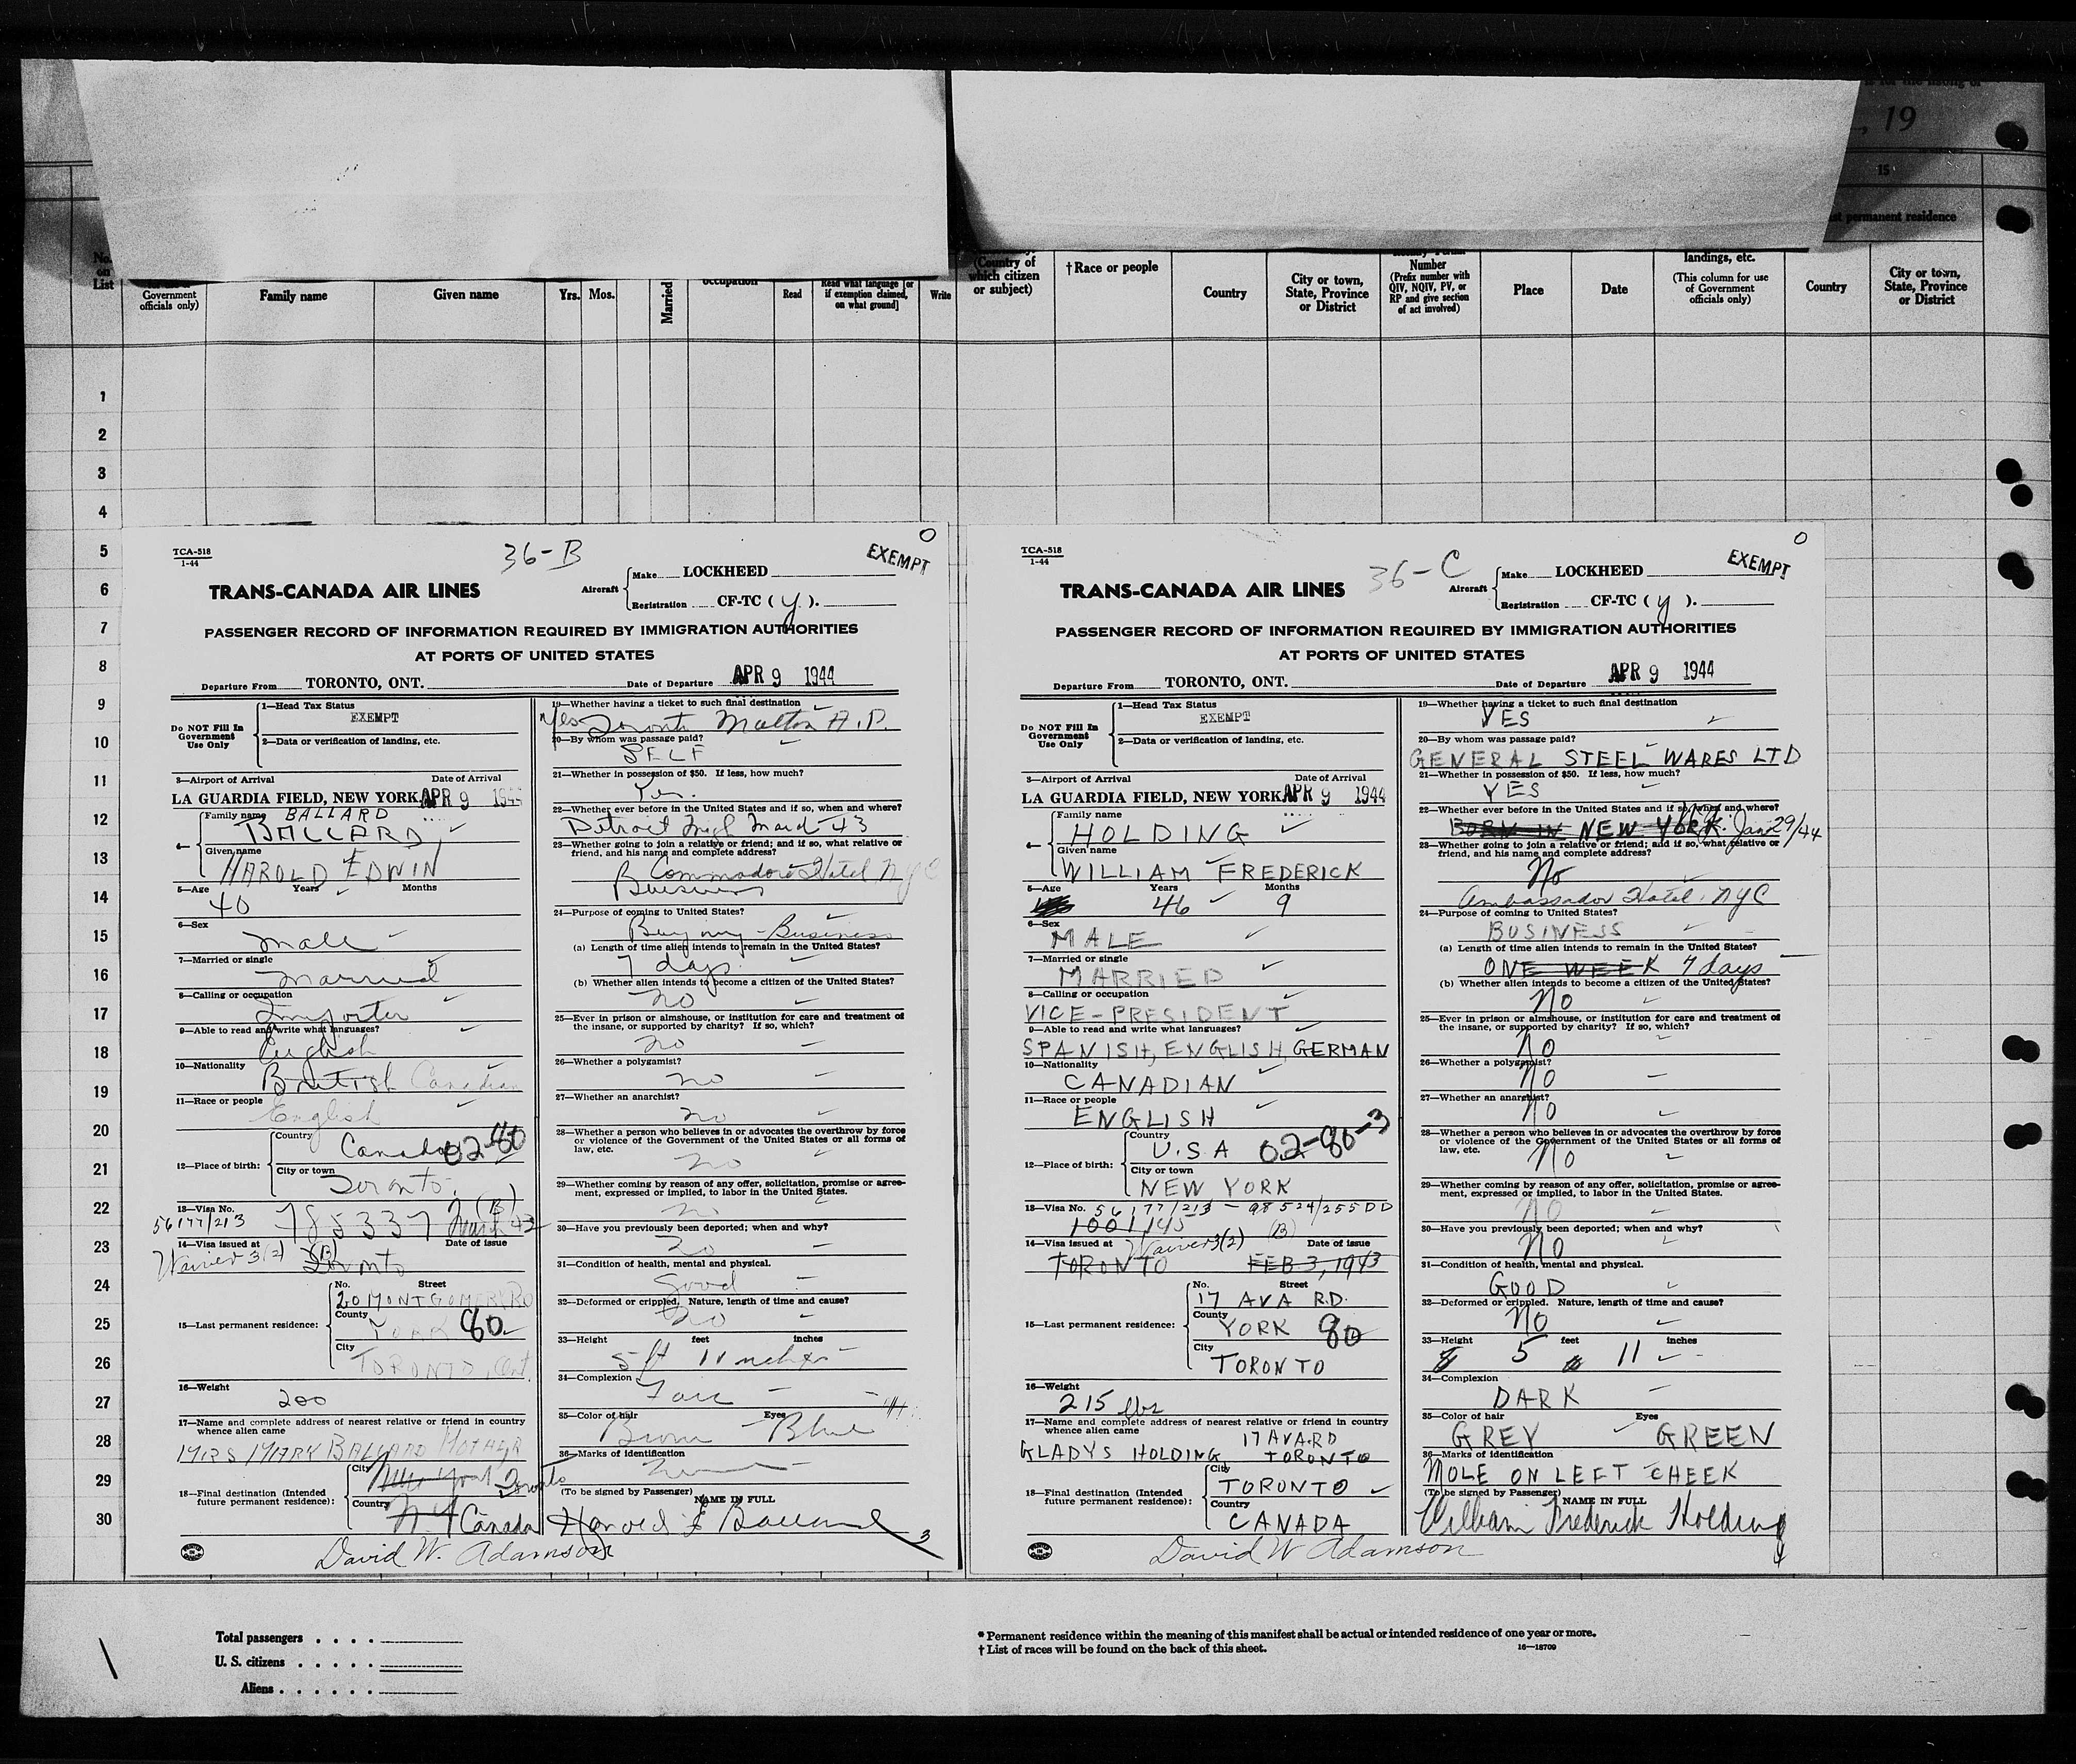 for the listing of
, 19
15
permanent residence
No. on List
Government officials only)
Family name
Given name
Yrs.
Mos.
Married
occupation
Read
Read what language [or if exemption claimed, on what ground]
Write
(Country of which citizen or subject)
†Race or people
Country
City or town, State, Province or District
Number (Prefix number with QIV, NQIV, PV, or RP and give section of act involved)
Place
Date
landings, etc. (This column for use of Government officials only)
Country
City or town, State, Province or District
1
2
3
4
5
6
7
8
9
10
11
12
13
14
15
16
17
18
19
20
21
22
23
24
25
26
27
28
29
30
TCA-518
1-44
36-B
EXEMPT
TRANS-CANADA AIR LINES
Aircraft
Make LOCKHEED
Registration CF-TC (y).
PASSENGER RECORD OF INFORMATION REQUIRED BY IMMIGRATION AUTHORITIES
AT PORTS OF UNITED STATES
Departure From TORONTO, ONT. Date of Departure APR 9 1944
Do NOT Fill In Government Use Only
1—Head Tax Status
EXEMPT
2—Data or verification of landing, etc.
3—Airport of Arrival Date of Arrival
LA GUARDIA FIELD, NEW YORK APR 9 1944
4—
Family name BALLARD
BALLARD
Given name
HAROLD EDWIN
5—Age Years Months
40
6—Sex
Male
7—Married or single
Married
8—Calling or occupation
Importer
9—Able to read and write what languages?
English
10—Nationality
British Canadian
11—Race or people
English
12—Place of birth:
Country
Canada 02-80
City or town
Toronto.
13—Visa No.
56177/213 785337 (B)
14—Visa issued at Date of issue
Waiver 3(2) (B) Toronto
15—Last permanent residence:
No. Street
20 MONTGOMERY RD
County
YORK 80
City
TORONTO, Ont.
16—Weight
200
17—Name and complete address of nearest relative or friend in country whence alien came
MRS MARY BALLARD MOTHER
18—Final destination (Intended future permanent residence):
City New York Toronto
Country
N.Y Canada
19—Whether having a ticket to such final destination
Yes Toronto Malton A.P.
20—By whom was passage paid?
SELF
21—Whether in possession of $50. If less, how much?
Yes.
22—Whether ever before in the United States and if so, when and where?
Detroit Mich March 43
23—Whether going to join a relative or friend; and if so, what relative or friend, and his name and complete address?
Commodore Hotel NYC
Business
24—Purpose of coming to United States?
Buying - Business
(a) Length of time alien intends to remain in the United States?
7 days
(b) Whether alien intends to become a citizen of the United States?
no
25—Ever in prison or almshouse, or institution for care and treatment of the insane, or supported by charity? If so, which?
no
26—Whether a polygamist?
no
27—Whether an anarchist?
no
28—Whether a person who believes in or advocates the overthrow by force or violence of the Government of the United States or all forms of law, etc.
no
29—Whether coming by reason of any offer, solicitation, promise or agreement, expressed or implied, to labor in the United States.
no
30—Have you previously been deported; when and why?
no
31—Condition of health, mental and physical.
Good
32—Deformed or crippled. Nature, length of time and cause?
no
33—Height feet inches
5 ft 11 inches
34—Complexion
Fair
35—Color of hair Eyes
Brown Blue
36—Marks of identification
(To be signed by Passenger) NAME IN FULL
Harold E Ballard
3
David W. Adamson
TCA-518
1-44
36-C
EXEMPT
TRANS-CANADA AIR LINES
Aircraft
Make LOCKHEED
Registration CF-TC (y).
PASSENGER RECORD OF INFORMATION REQUIRED BY IMMIGRATION AUTHORITIES
AT PORTS OF UNITED STATES
Departure From TORONTO, ONT. Date of Departure APR 9 1944
Do NOT Fill In Government Use Only
1—Head Tax Status
EXEMPT
2—Data or verification of landing, etc.
3—Airport of Arrival Date of Arrival
LA GUARDIA FIELD, NEW YORK APR 9 1944
4—
Family name
HOLDING
Given name
WILLIAM FREDERICK
5—Age Years Months
46 9
6—Sex
MALE
7—Married or single
MARRIED
8—Calling or occupation
VICE-PRESIDENT
9—Able to read and write what languages?
SPANISH, ENGLISH, GERMAN
10—Nationality
CANADIAN
11—Race or people
ENGLISH
12—Place of birth:
Country
U.S.A 02-80-3
City or town
NEW YORK
13—Visa No. 56177/213 - 98524/255DD
1001145 (B)
14—Visa issued at Waiver 3(2) Date of issue
TORONTO FEB 3, 1943
15—Last permanent residence:
No. Street
17 AVA RD.
County
YORK 80
City
TORONTO
16—Weight
215 lbs
17—Name and complete address of nearest relative or friend in country whence alien came
17 AVA.RD
GLADYS HOLDING TORONTO
18—Final destination (Intended future permanent residence):
City
TORONTO
Country
CANADA
19—Whether having a ticket to such final destination
YES
20—By whom was passage paid?
GENERAL STEEL WARES LTD
21—Whether in possession of $50. If less, how much?
YES
22—Whether ever before in the United States and if so, when and where?
BORN IN NEW YORK. Jan 29/44
23—Whether going to join a relative or friend; and if so, what relative or friend, and his name and complete address?
No
Ambassador Hotel. NYC
24—Purpose of coming to United States?
BUSINESS
(a) Length of time alien intends to remain in the United States?
ONE WEEK 7 days
(b) Whether alien intends to become a citizen of the United States?
No
25—Ever in prison or almshouse, or institution for care and treatment of the insane, or supported by charity? If so, which?
NO
26—Whether a polygamist?
NO
27—Whether an anarchist?
NO
28—Whether a person who believes in or advocates the overthrow by force or violence of the Government of the United States or all forms of law, etc.
No
29—Whether coming by reason of any offer, solicitation, promise or agreement, expressed or implied, to labor in the United States.
NO
30—Have you previously been deported; when and why?
No
31—Condition of health, mental and physical.
GOOD
32—Deformed or crippled. Nature, length of time and cause?
No
33—Height feet inches
5 11
34—Complexion
DARK
35—Color of hair Eyes
GREY GREEN
36—Marks of identification
MOLE ON LEFT CHEEK
(To be signed by Passenger) NAME IN FULL
William Frederick Holding
4
David W Adamson
Total passengers . . . .
U. S. citizens . . . . .
Aliens . . . . . .
* Permanent residence within the meaning of this manifest shall be actual or intended residence of one year or more.
† List of races will be found on the back of this sheet.
16—18709